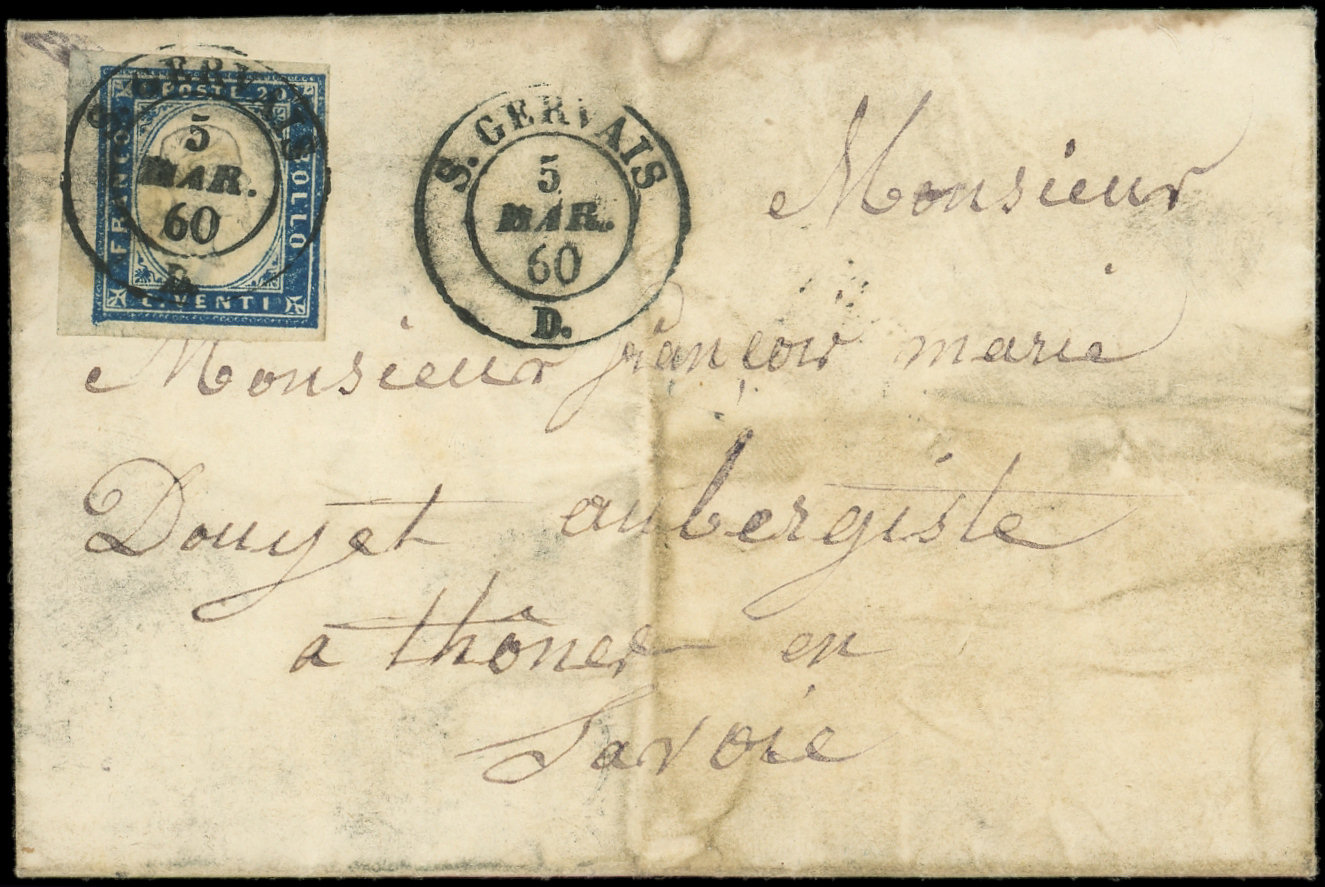 S. GERVAIS
5
MAR.
60
D.
FRANCO
POSTE 20
BOLLO
C. VENTI
S. GERVAIS
5
MAR.
60
D.
Monsieur
Monsieur françois marie
Douyet aubergiste
à thônes en
Savoie